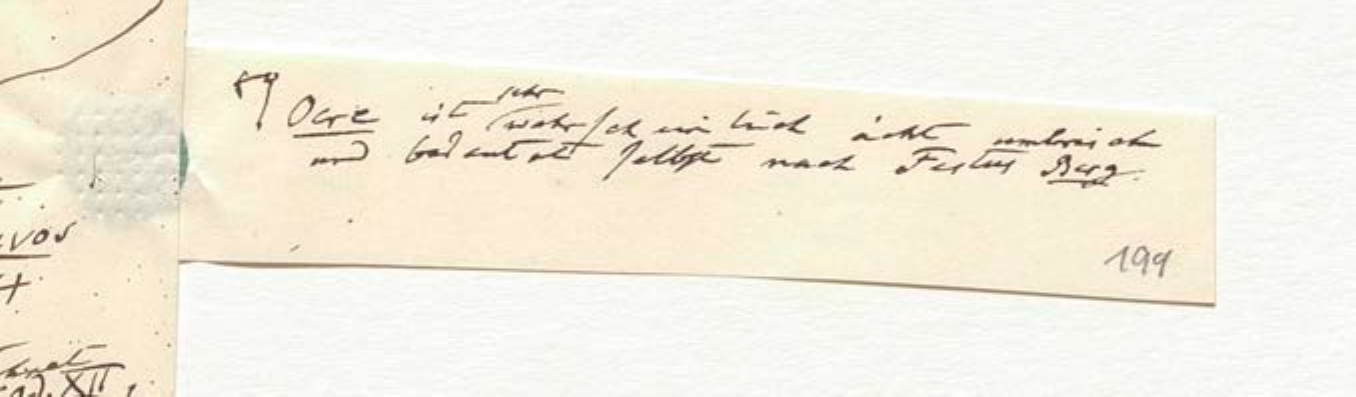 Ocre ist sehr wahrscheinlich ächt umbrisch
und bedeutet selbst nach Festus Berg.
199
vos
XII,